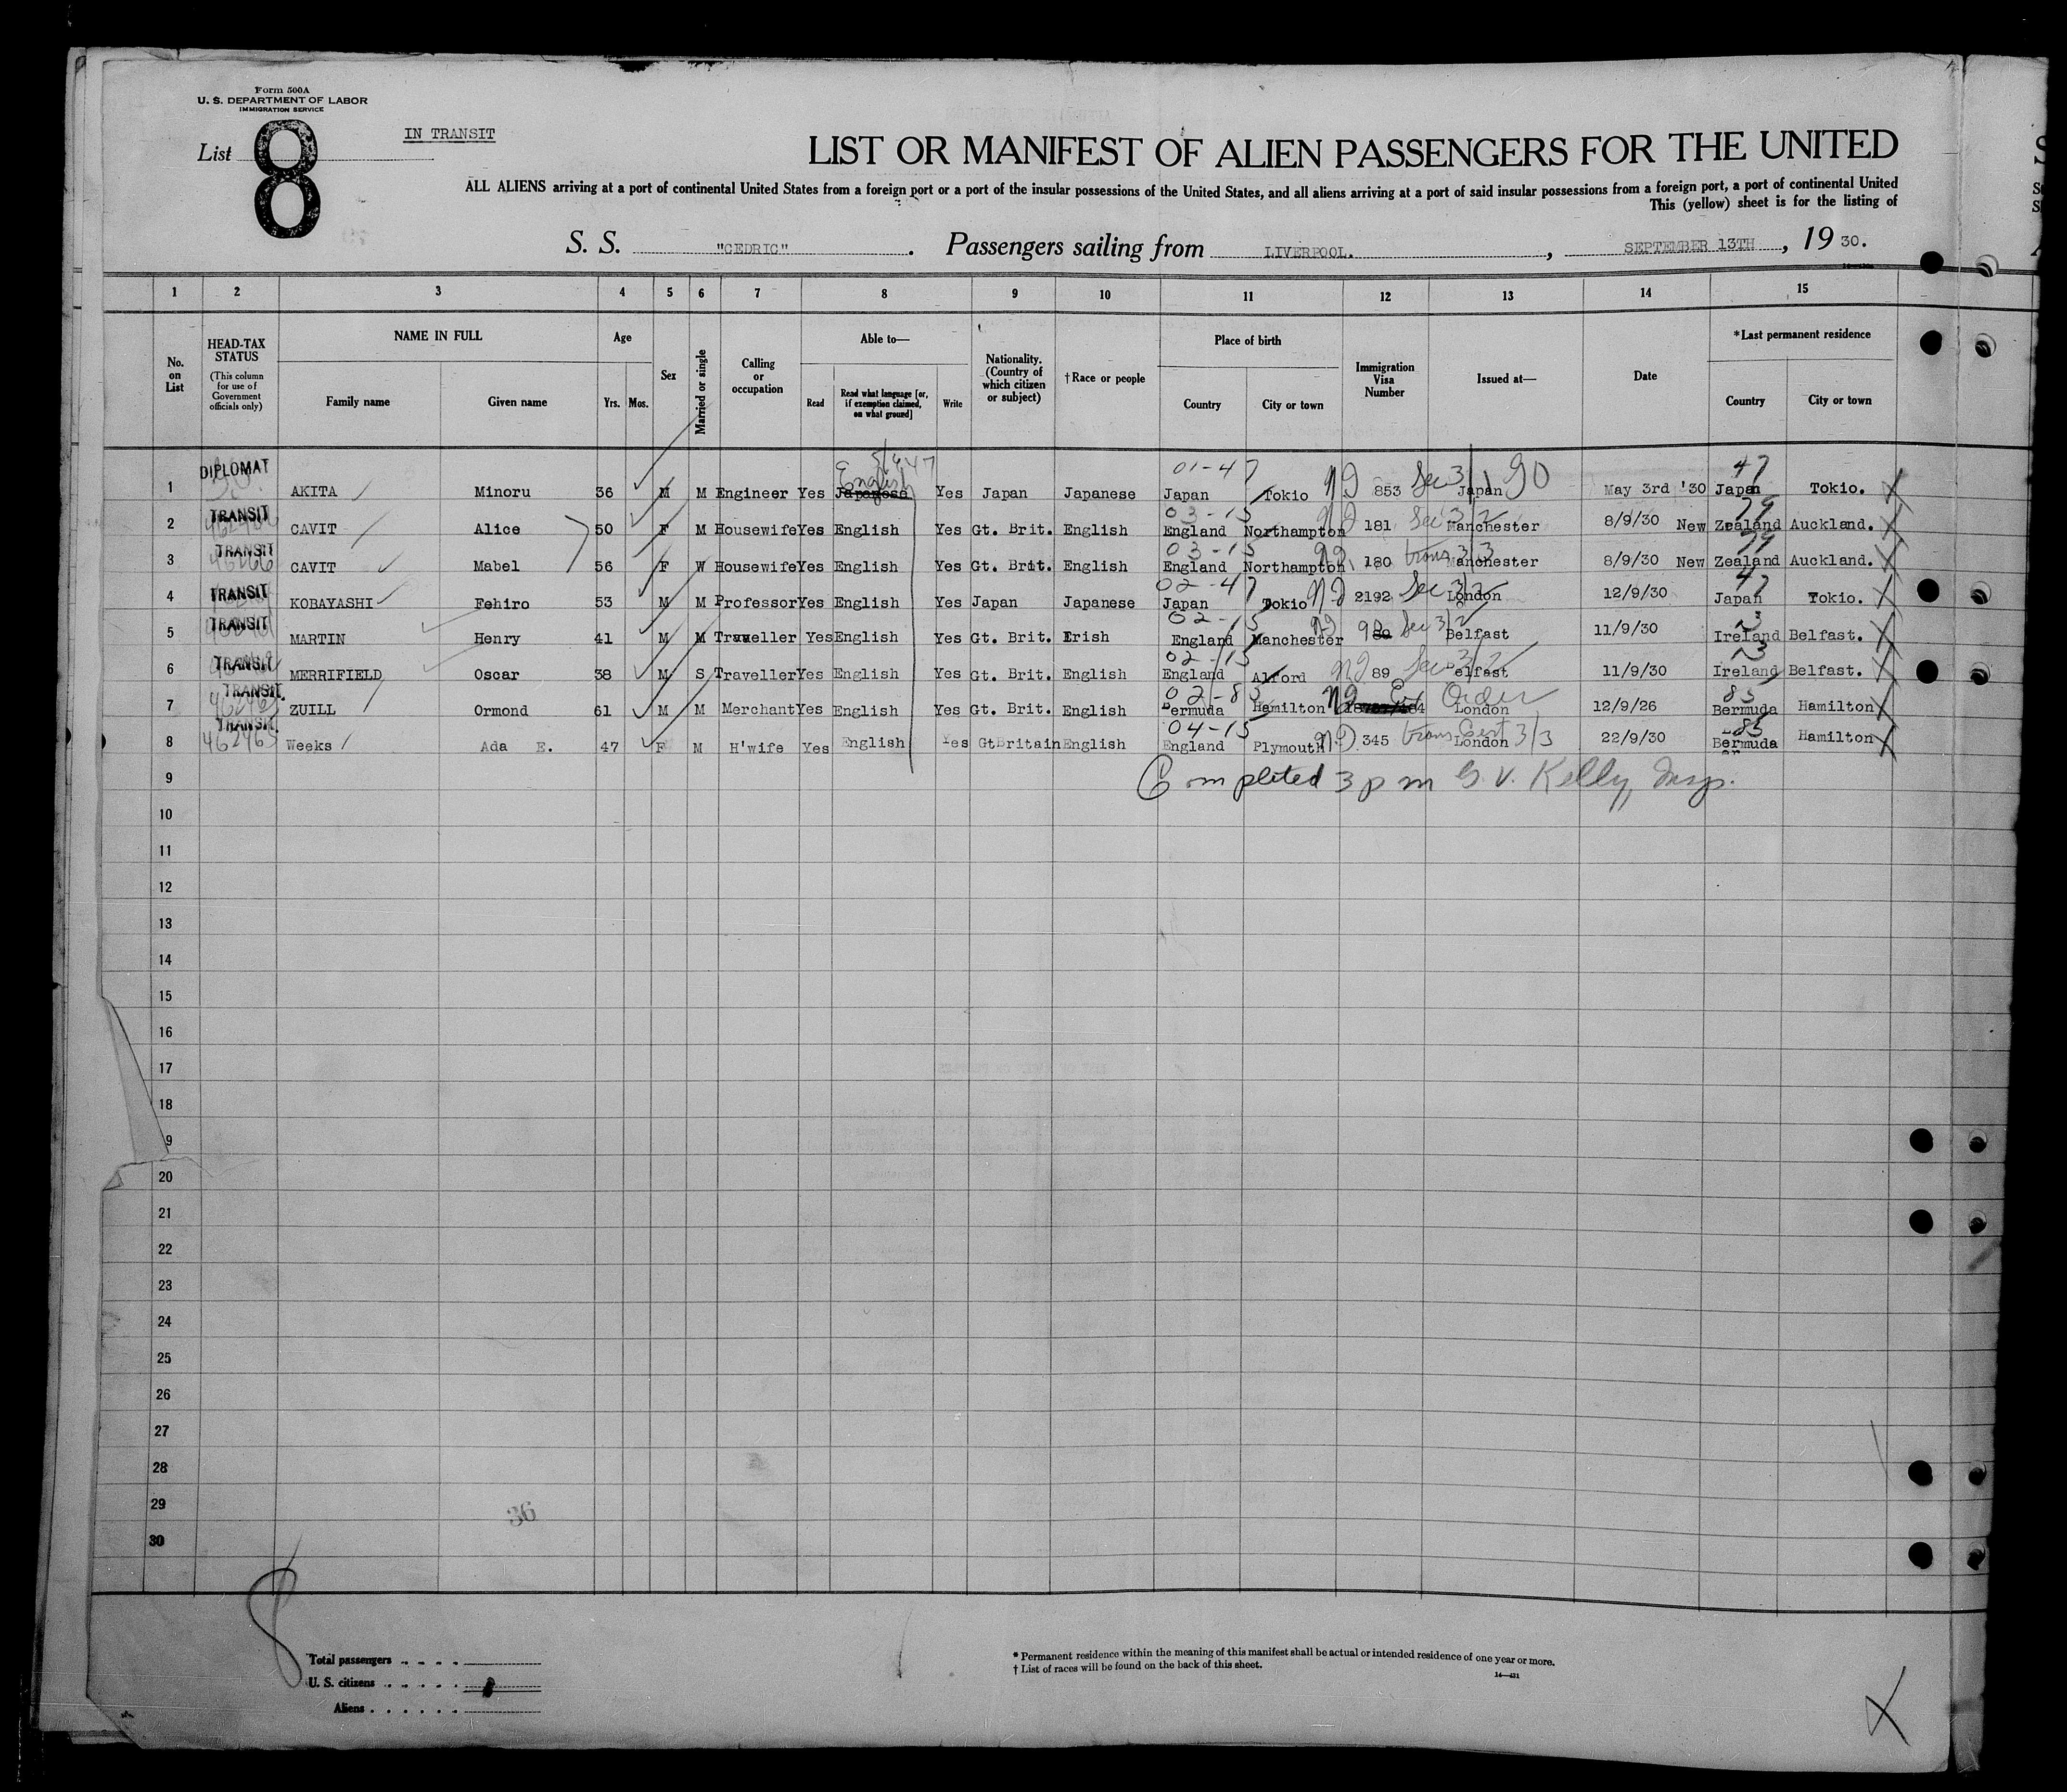 Form 500A
U. S. DEPARTMENT OF LABOR
IMMIGRATION SERVICE
List 8
IN TRANSIT
LIST OR MANIFEST OF ALIEN PASSENGERS FOR THE UNITED
ALL ALIENS arriving at a port of continental United States from a foreign port or a port of the insular possessions of the United States, and all aliens arriving at a port of said insular possessions from a foreign port, a port of continental United
This (yellow) sheet is for the listing of
S. S. "CEDRIC". Passengers sailing from LIVERPOOL., SEPTEMBER 13TH, 1930.
1 2 3 4 5 6 7 8 9 10 11 12 13 14 15
No. on List
HEAD-TAX STATUS (This column for use of Government officials only)
NAME IN FULL
Family name Given name
Age
Yrs. Mos.
Sex
Married or single
Calling or occupation
Able to—
Read Read what language [or, if exemption claimed, on what ground] Write
Nationality. (Country of which citizen or subject)
†Race or people
Place of birth
Country City or town
Immigration Visa Number
Issued at—
Date
*Last permanent residence
Country City or town
01-47 47
1 DIPLOMAT AKITA Minoru 36 M M Engineer Yes Japanese English Yes Japan Japanese Japan Tokio 853 Sec 3/1 Japan May 3rd '30 Japan Tokio.
03-15 79
2 TRANSIT CAVIT Alice 50 F M Housewife Yes English Yes Gt. Brit. English England Northampton 181 Sec 3/2 Manchester 8/9/30 New Zealand Auckland.
03-15 79
3 TRANSIT 462466 CAVIT Mabel 56 F W Housewife Yes English Yes Gt. Brit. English England Northampton 180 trans 3/3 Manchester 8/9/30 New Zealand Auckland.
02-47 47
4 TRANSIT KOBAYASHI Fehiro 53 M M Professor Yes English Yes Japan Japanese Japan Tokio 2192 Sec 3/2 London 12/9/30 Japan Tokio.
02-15
5 TRANSIT MARTIN Henry 41 M M Traveller Yes English Yes Gt. Brit. Irish England Manchester 90 Sec 3/2 Belfast 11/9/30 Ireland Belfast.
02-15
6 TRANSIT MERRIFIELD Oscar 38 M S Traveller Yes English Yes Gt. Brit. English England Alford 89 Sec 3/2 elfast 11/9/30 Ireland Belfast.
02-83 83
7 TRANSIT. ZUILL Ormond 61 M M Merchant Yes English Yes Gt. Brit. English Bermuda Hamilton Order London 12/9/26 Bermuda Hamilton
04-15 83
8 TRANSIT. 462465 Weeks Ada E. 47 F M H'wife Yes English Yes GtBritain English England Plymouth 345 trans Cert 3/3 London 22/9/30 Bermuda Hamilton
9 Completed 3 pm G. V. Kelly, Insp.
10
11
12
13
14
15
16
17
18
9
20
21
22
23
24
25
26
27
28
29
36
30
8
Total passengers
U. S. citizens
Aliens
* Permanent residence within the meaning of this manifest shall be actual or intended residence of one year or more.
† List of races will be found on the back of this sheet.